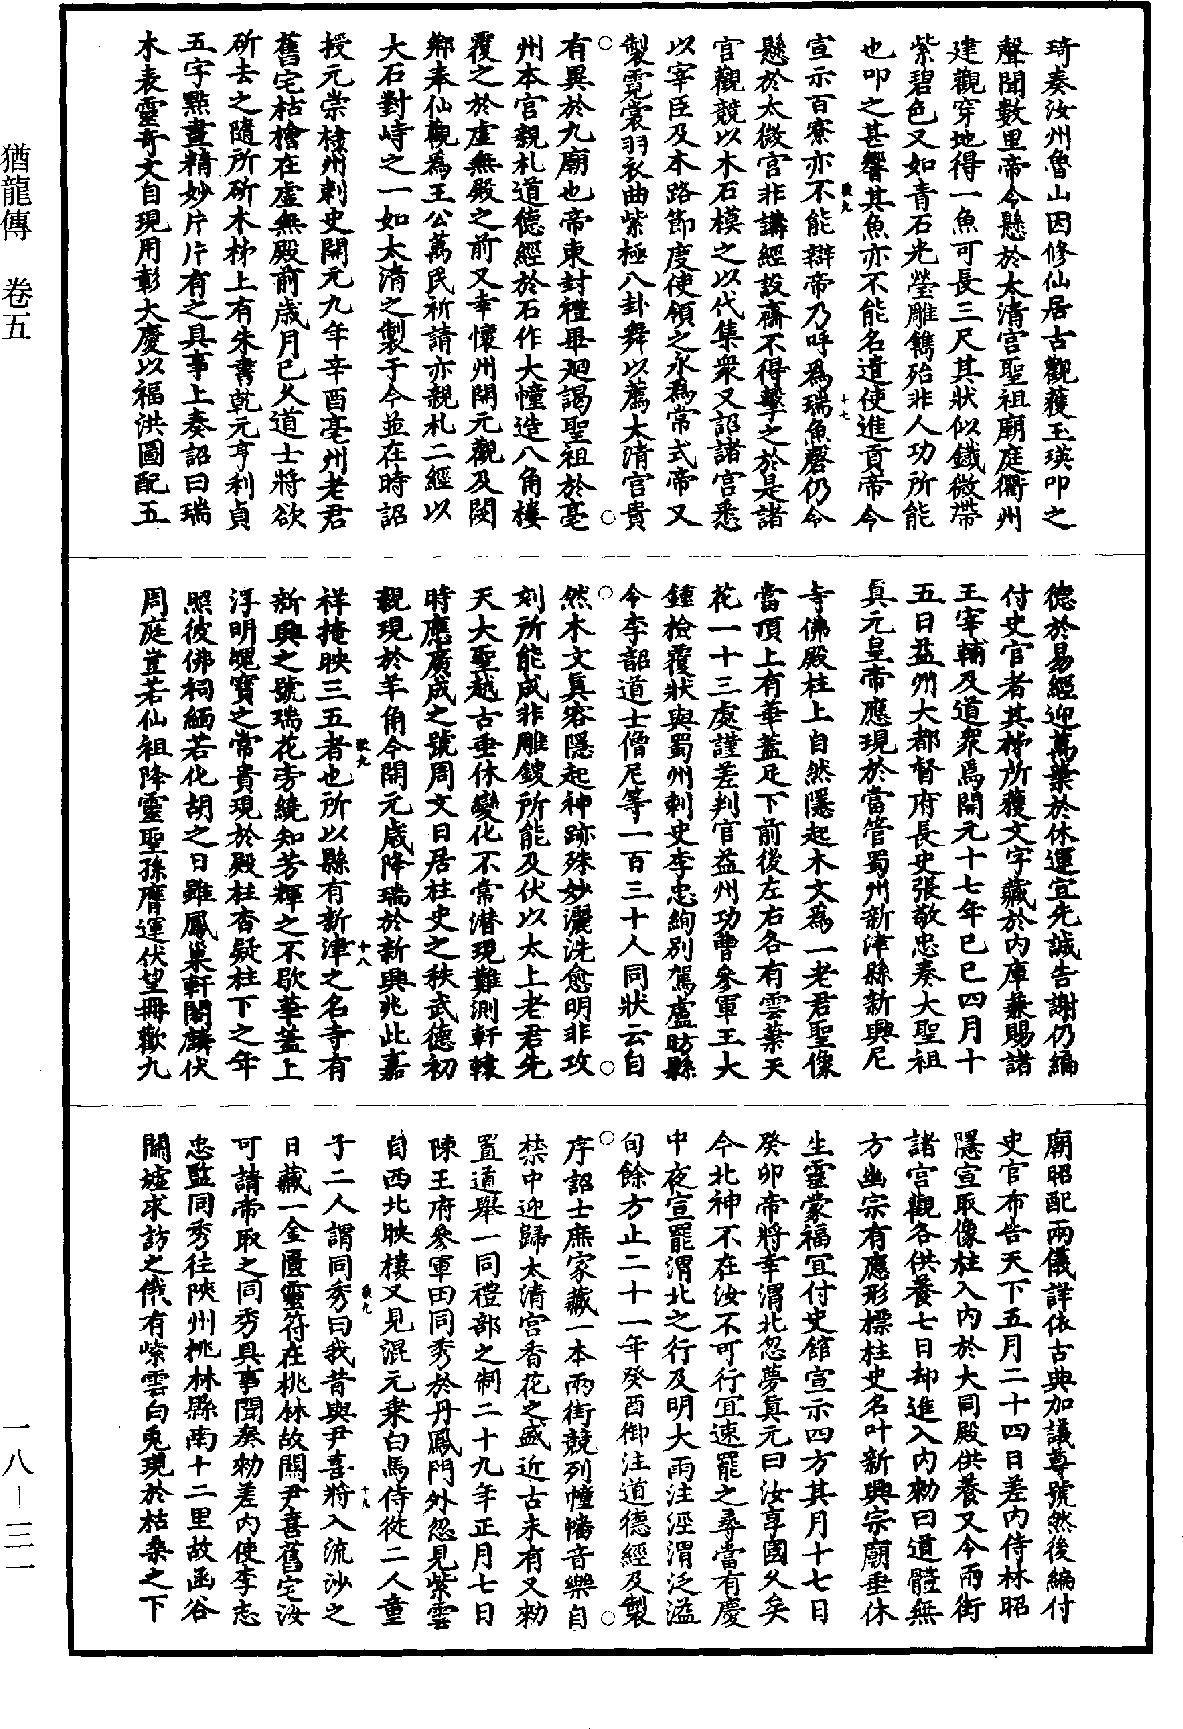 琦奏汝州魯山因修仙居古觀獲玉瑛叩之
聲聞數里帝令懸於太清宮聖祖廟庭衢州
建觀穿地得一魚可長三尺其狀似鐵微帶
紫碧色又如青石光瑩雕鐫殆非人功所能
也叩之甚響其魚亦不能名遣使進貢帝令
宣示百寮亦不能辯帝乃呼爲瑞魚磬仍令
懸於太微宮非講經設齋不得擊之於是諸
宮觀競以木石模之以代集衆又詔諸宮悉
以宰臣及本路節度使領之永爲常式帝又
製霓裳羽衣曲紫極八卦舞以薦太清宮貴
有異於九廟也帝東封禮畢廻謁聖祖於亳
州本宮親札道德經於石作大幢造八角樓
覆之於虛無殿之前又幸懷州開元觀及閿
鄉奉仙觀爲王公萬民祈請亦親札二經以
大石對峙之一如太清之製于今並在時詔
授元崇棣州刺史開元九年辛酉亳州老君
舊宅枯檜在虛無殿前歲月已久道士將欲
斫去之隨所斫木梯上有朱書乾元亨利貞
五字點畫精妙片片有之具事上奏詔曰瑞
木表靈奇文自現用彰大慶以福洪圖配五
德於易經迎萬葉於休運宜先誠告謝仍編
付史官者其梯所獲文字藏於內庫兼賜諸
王宰輔及道衆焉開元十七年己巳四月十
五日益州大都督府長史張敬忠奏大聖祖
真元皇帝應現於當管蜀州新津縣新興尼
寺佛殿柱上自然隱起木文爲一老君聖像
當頂上有華蓋足下前後左右各有雲葉天
花一十三處謹差判官益州功曹參軍王大
鍾檢覆狀與蜀州刺史李忠絢別駕盧昉縣
令李韶道士僧尼等一百三十人同狀云自
然木文真容隱起神跡殊妙灑洗愈明非攻
刻所能成非雕鏤所能及伏以太上老君先
天大聖越古垂休變化不常潛現難測軒轅
時應廣成之號周文日居柱史之秩武德初
親現於羊角今開元歲降瑞於新興兆此嘉
祥掩映三五者也所以縣有新津之名寺有
新興之號瑞花旁繞知芳輝之不歇華蓋上
浮明魄寶之常貴現於殿柱杳疑柱下之年
照彼佛祠緬若化胡之日雖鳳巢軒閣麟伏
周庭豈若仙祖降靈聖孫膺運伏望冊歡九
廟昭配兩儀詳依古典加議尊號然後編付
史官布告天下五月二十四日差內侍林昭
隱宣取像柱入內於大同殿供養又令兩街
諸宮觀各供養七日却進入內勑曰道體無
方幽宗有應形標柱史名叶新興宗廟垂休
生靈蒙福宜付史館宣示四方其月十七日
癸卯帝將幸渭北忽夢真元曰汝享國久矣
今北神不在汝不可行宜速罷之尋當有慶
中夜宣罷渭北之行及明大雨注涇渭泛溢
旬餘方止二十一年癸酉御注道德經及製
序詔士庶家藏一本兩街競列幢幡音樂自
禁中迎歸太清宮香花之盛近古未有又勑
置道舉一同禮部之制二十九年正月七日
陳王府參軍田同秀於丹鳳門外忽見紫雲
自西北映樓又見混元乘白馬侍從二人童
子二人謂同秀曰我昔與尹喜將入流沙之
日藏一金匱靈符在桃林故關尹喜舊宅汝
可請帝取之同秀具事聞奏勑差內使李志
忠監同秀往陝州桃林縣南十二里故函谷
關墟求訪之俄有紫雲白兎現於枯桑之下
猶龍傳　卷五
一八—三一